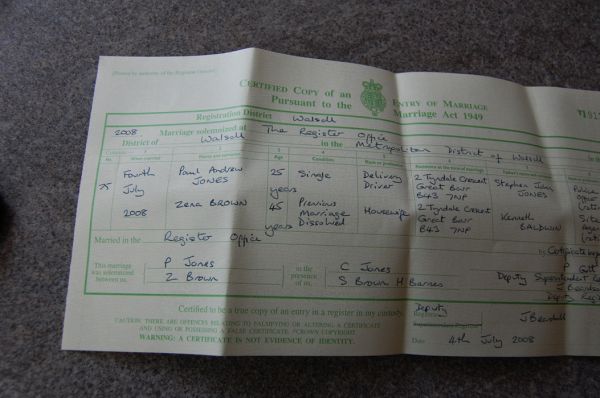 CERTIFIED COPY of an ENTRY OF MARRIAGE
Pursuant to the Marriage Act 1949
Registration District Walsall
2008. Marriage solemnized at The Register Office
District of Walsall in the Metropolitan District of Walsall
No. When married Name and surname Age Condition
Fourth July 2008
Paul Andrew JONES
25 years
Single
Delivery Driver
2 Tyndale Crescent Great Barr B43 7NP
Stephen John JONES
Zena BROWN
45 years
Previous Marriage Dissolved
Housewife
2 Tyndale Crescent Great Barr B43 7NP
Kenneth BALDWIN
Married in the Register Office
by Certificate
This marriage was solemnized between us,
P Jones
Z Brown
in the presence of us,
C Jones
S Brown H Barnes
Deputy Superintendent
Deputy
Certified to be a true copy of an entry in a register in my custody.
Deputy
J Beardsall
CAUTION: THERE ARE OFFENCES RELATING TO FALSIFYING OR ALTERING A CERTIFICATE
AND USING OR POSSESSING A FALSE CERTIFICATE. ©CROWN COPYRIGHT
WARNING: A CERTIFICATE IS NOT EVIDENCE OF IDENTITY.
Date 4th July 2008